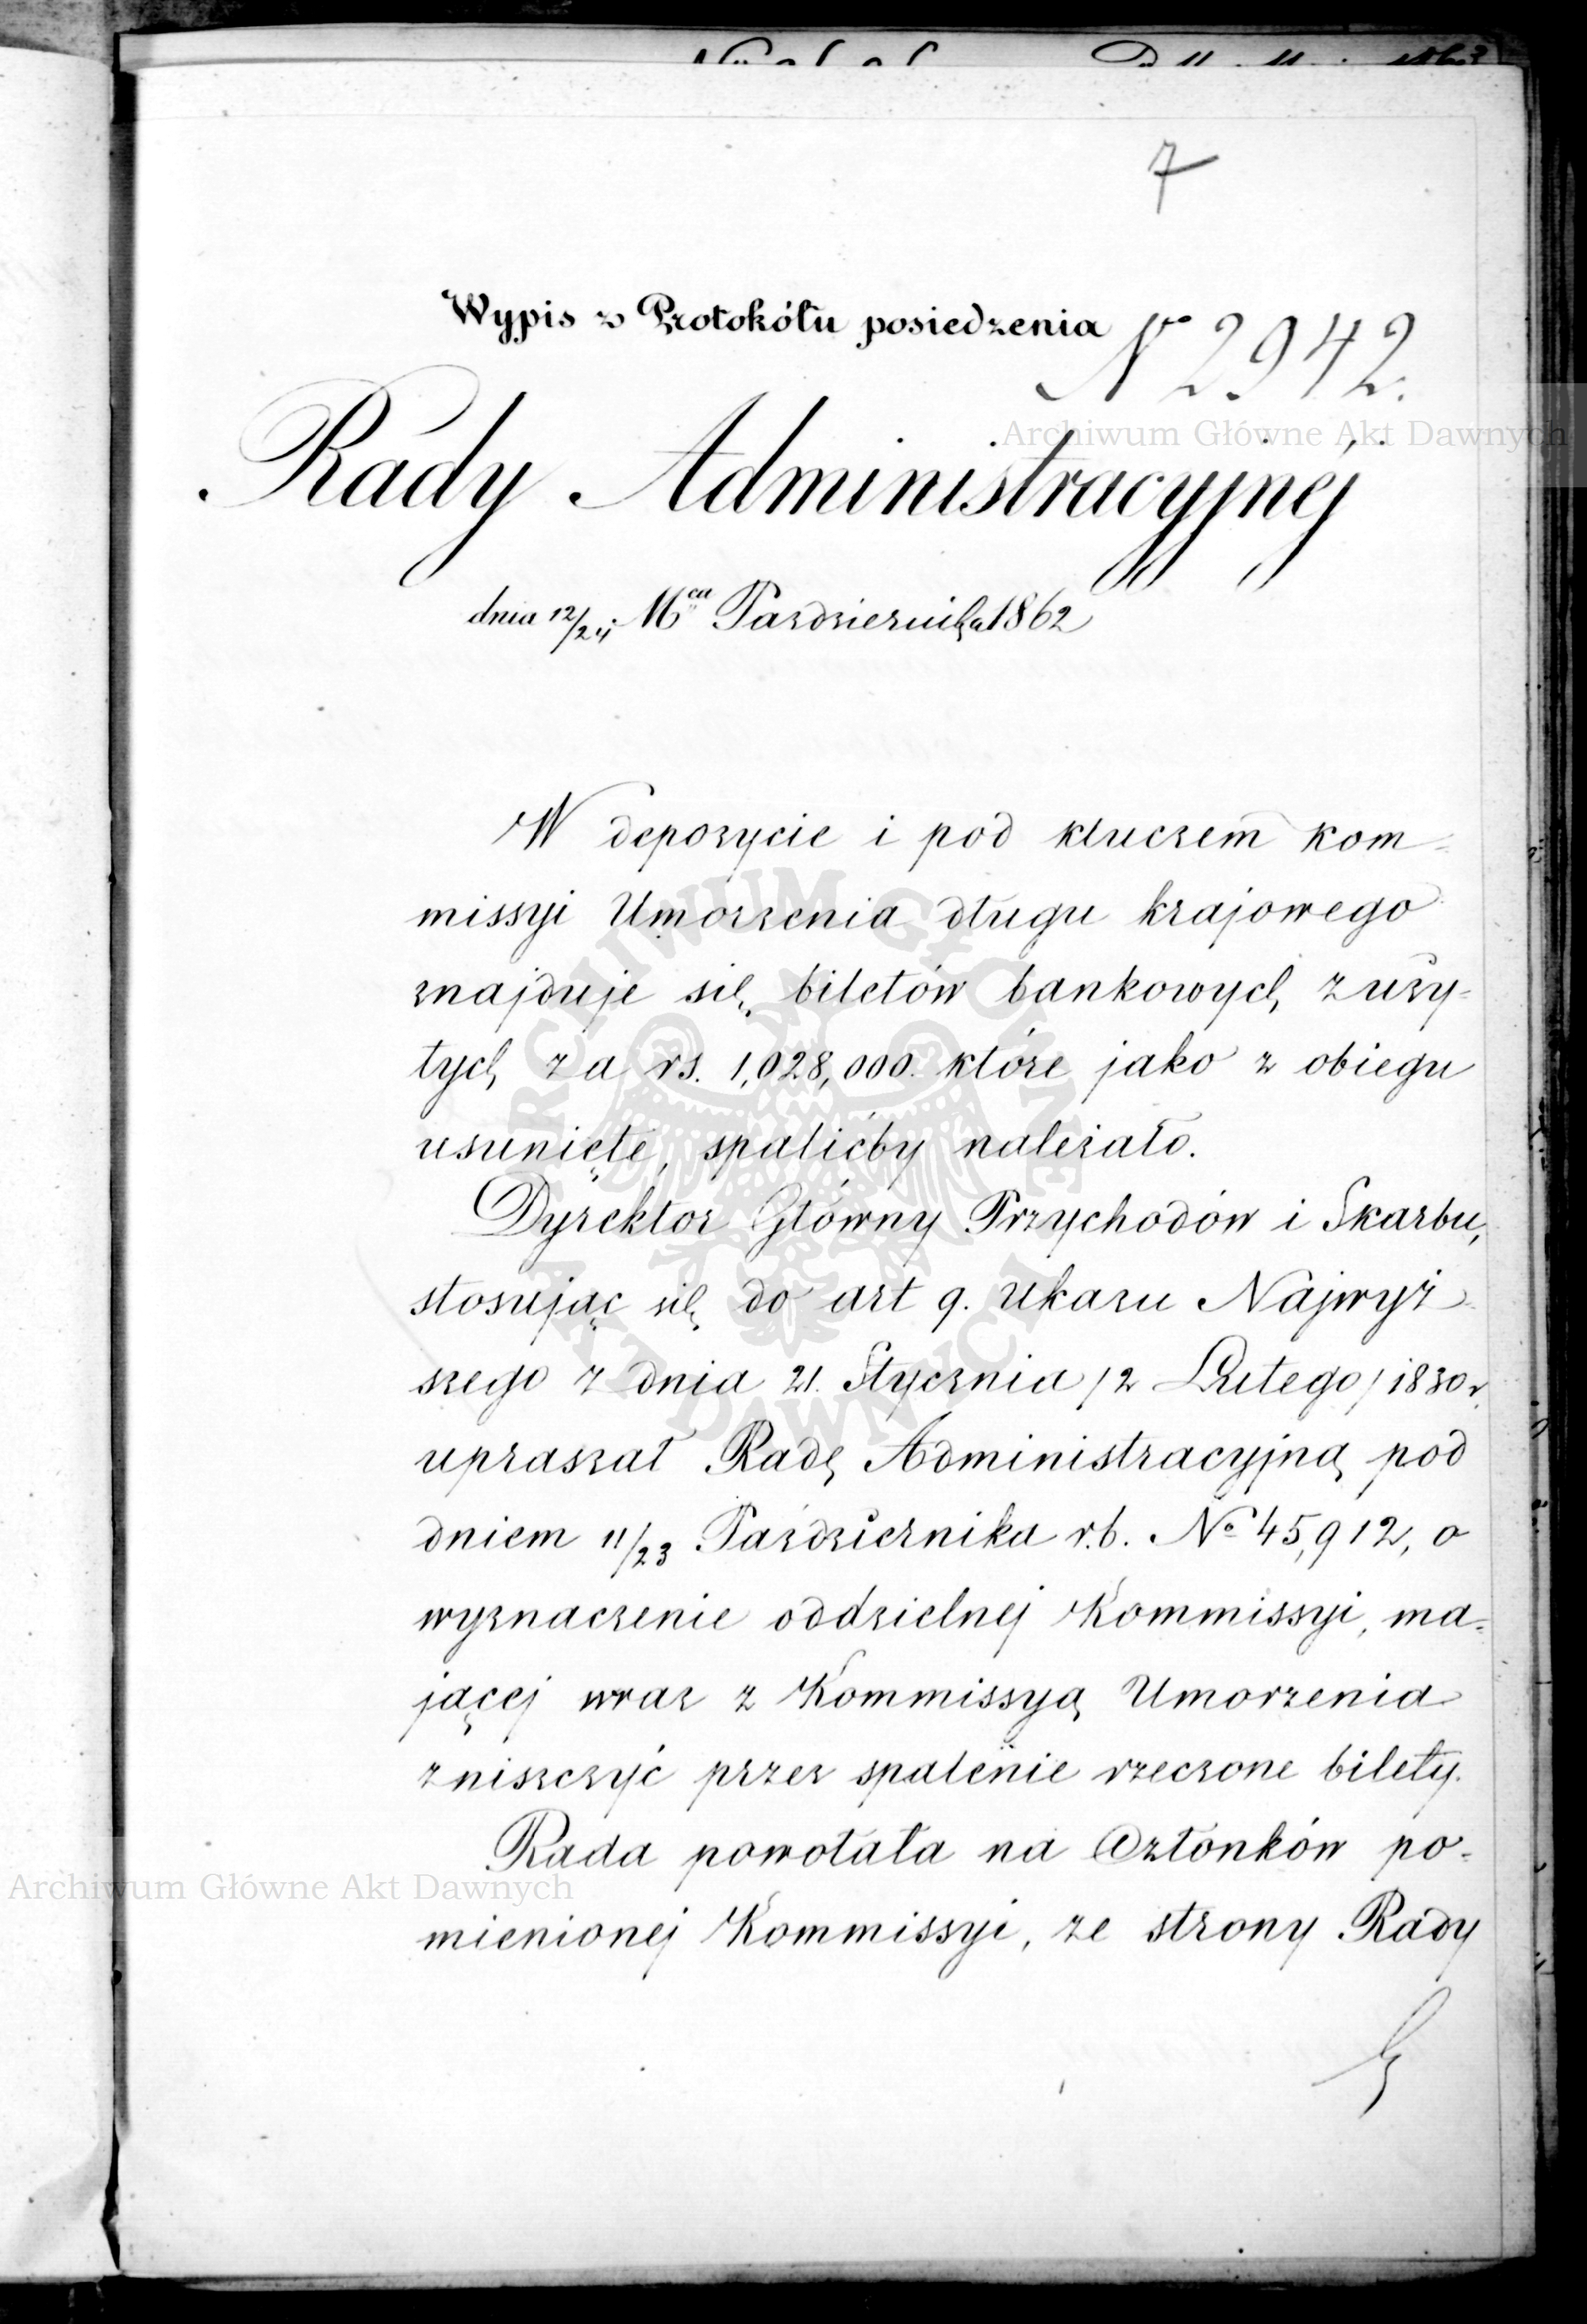 7
Wypis z Protokółu posiedzenia
N 2942.
Rady Administracyjnéj
dnia 12/24 Mca Pazdziernika 1862
W depozycie i pod kluczem kom-
missyi Umorzenia długu krajowego
znajduje się biletów bankowych zuży-
tych za rs. 1,028,000. które jako z obiegu
usunięte, spalićby należało.
Dyrektor Główny Przychodów i Skarbu,
stosując się do art 9. Ukazu Najwyż-
szego z dnia 21. Stycznia /2 Lutego/ 1830 r.
upraszał Radę Administracyjną pod
dniem 11/23 Października r.b. No 45,912, o
wyznaczenie oddzielnej Kommissyi, ma-
jącej wraz z Kommissyą Umorzenia
zniszczyć przez spalenie rzeczone bilety.
Rada powołała na Członków po-
mienionej Kommissyi, ze strony Rady
Archiwum Główne Akt Dawnych
Archiwum Główne Akt Dawnych
ARCHIWUM GŁÓWNE
AKT DAWNYCH